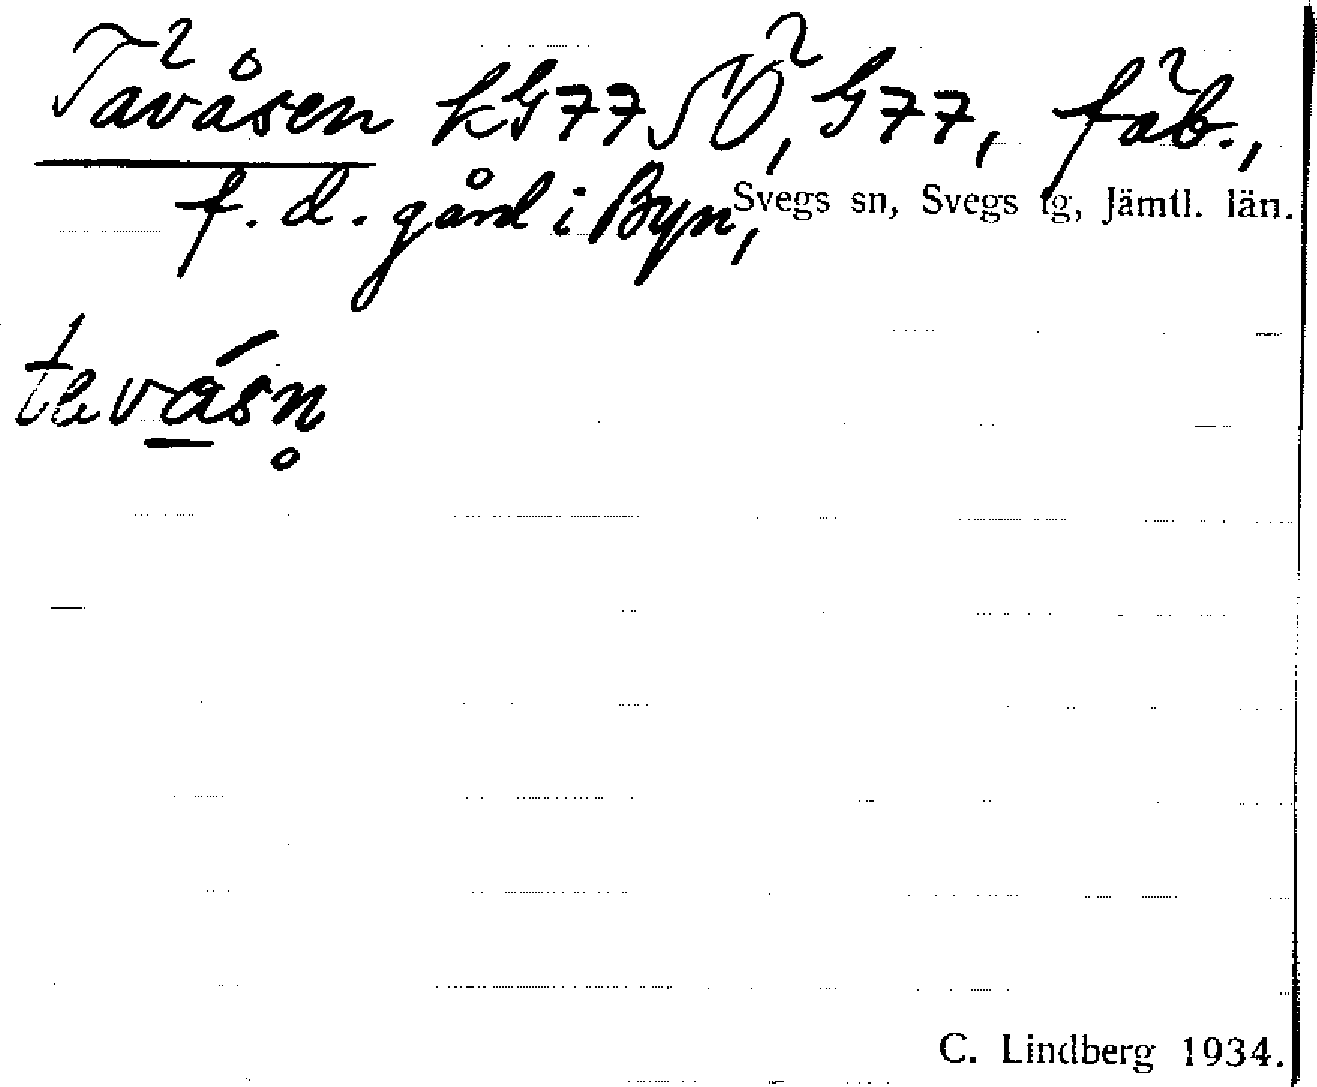 Tävåsen kG77SÖ, G77, fäb.,
f. d. gård i Byn, Svegs sn, Svegs tg, Jämtl. län.
C. Lindberg 1934.